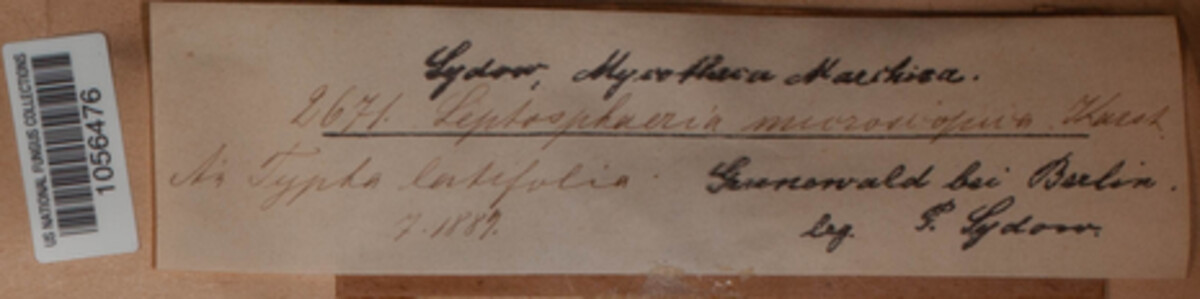 US NATIONAL FUNGUS COLLECTIONS
1056476
Sydow, Mycotheca Marchica.
2671. Leptosphaeria microscopica Karst
An Typha latifolia. Grunewald bei Berlin.
7.1889. leg. P. Sydow.